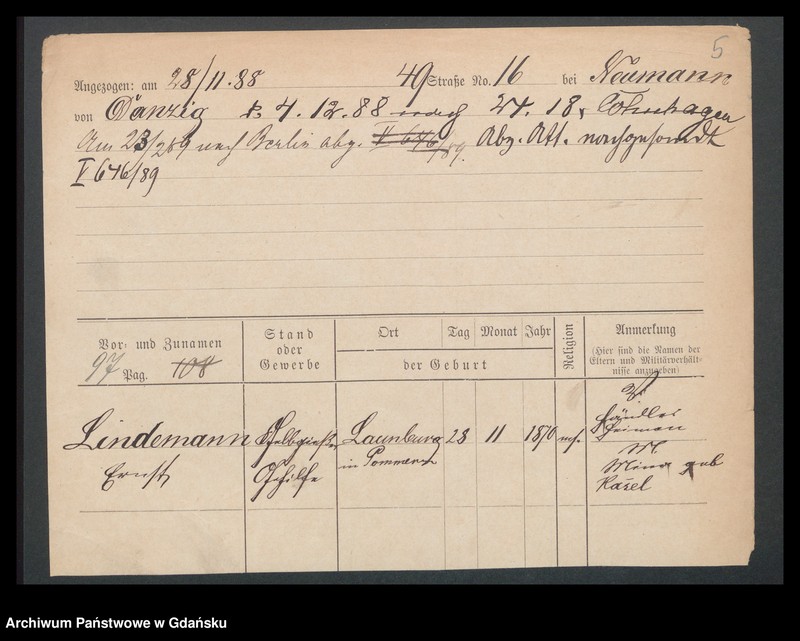 5
Angezogen: am 28/11.88 49 Straße No. 16 bei Neumann
von Danzig 4.12.88 nach 24. 18
Am 23/2 89 nach Berlin abg. V 646/89. Abg. Att. nachgesandt
V 646/89
Vor- und Zunamen
97 Pag. 108
Stand
oder
Gewerbe
Ort Tag Monat Jahr
der Geburt
Religion
Anmerkung
(Hier sind die Namen der
Eltern und Militärverhält-
nisse anzugeben)
V.
Lindemann Gelbgießer Lauenburg 23 11 1870 mos. Händler
Ernst Gehilfe in Pommern
M.
Mina geb
Kasel
Archiwum Państwowe w Gdańsku